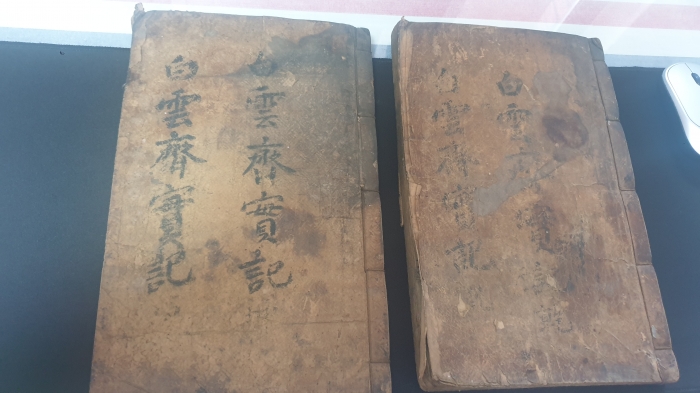 白雲齊實記
白雲齊實記
白雲齊實記
白雲齊實記